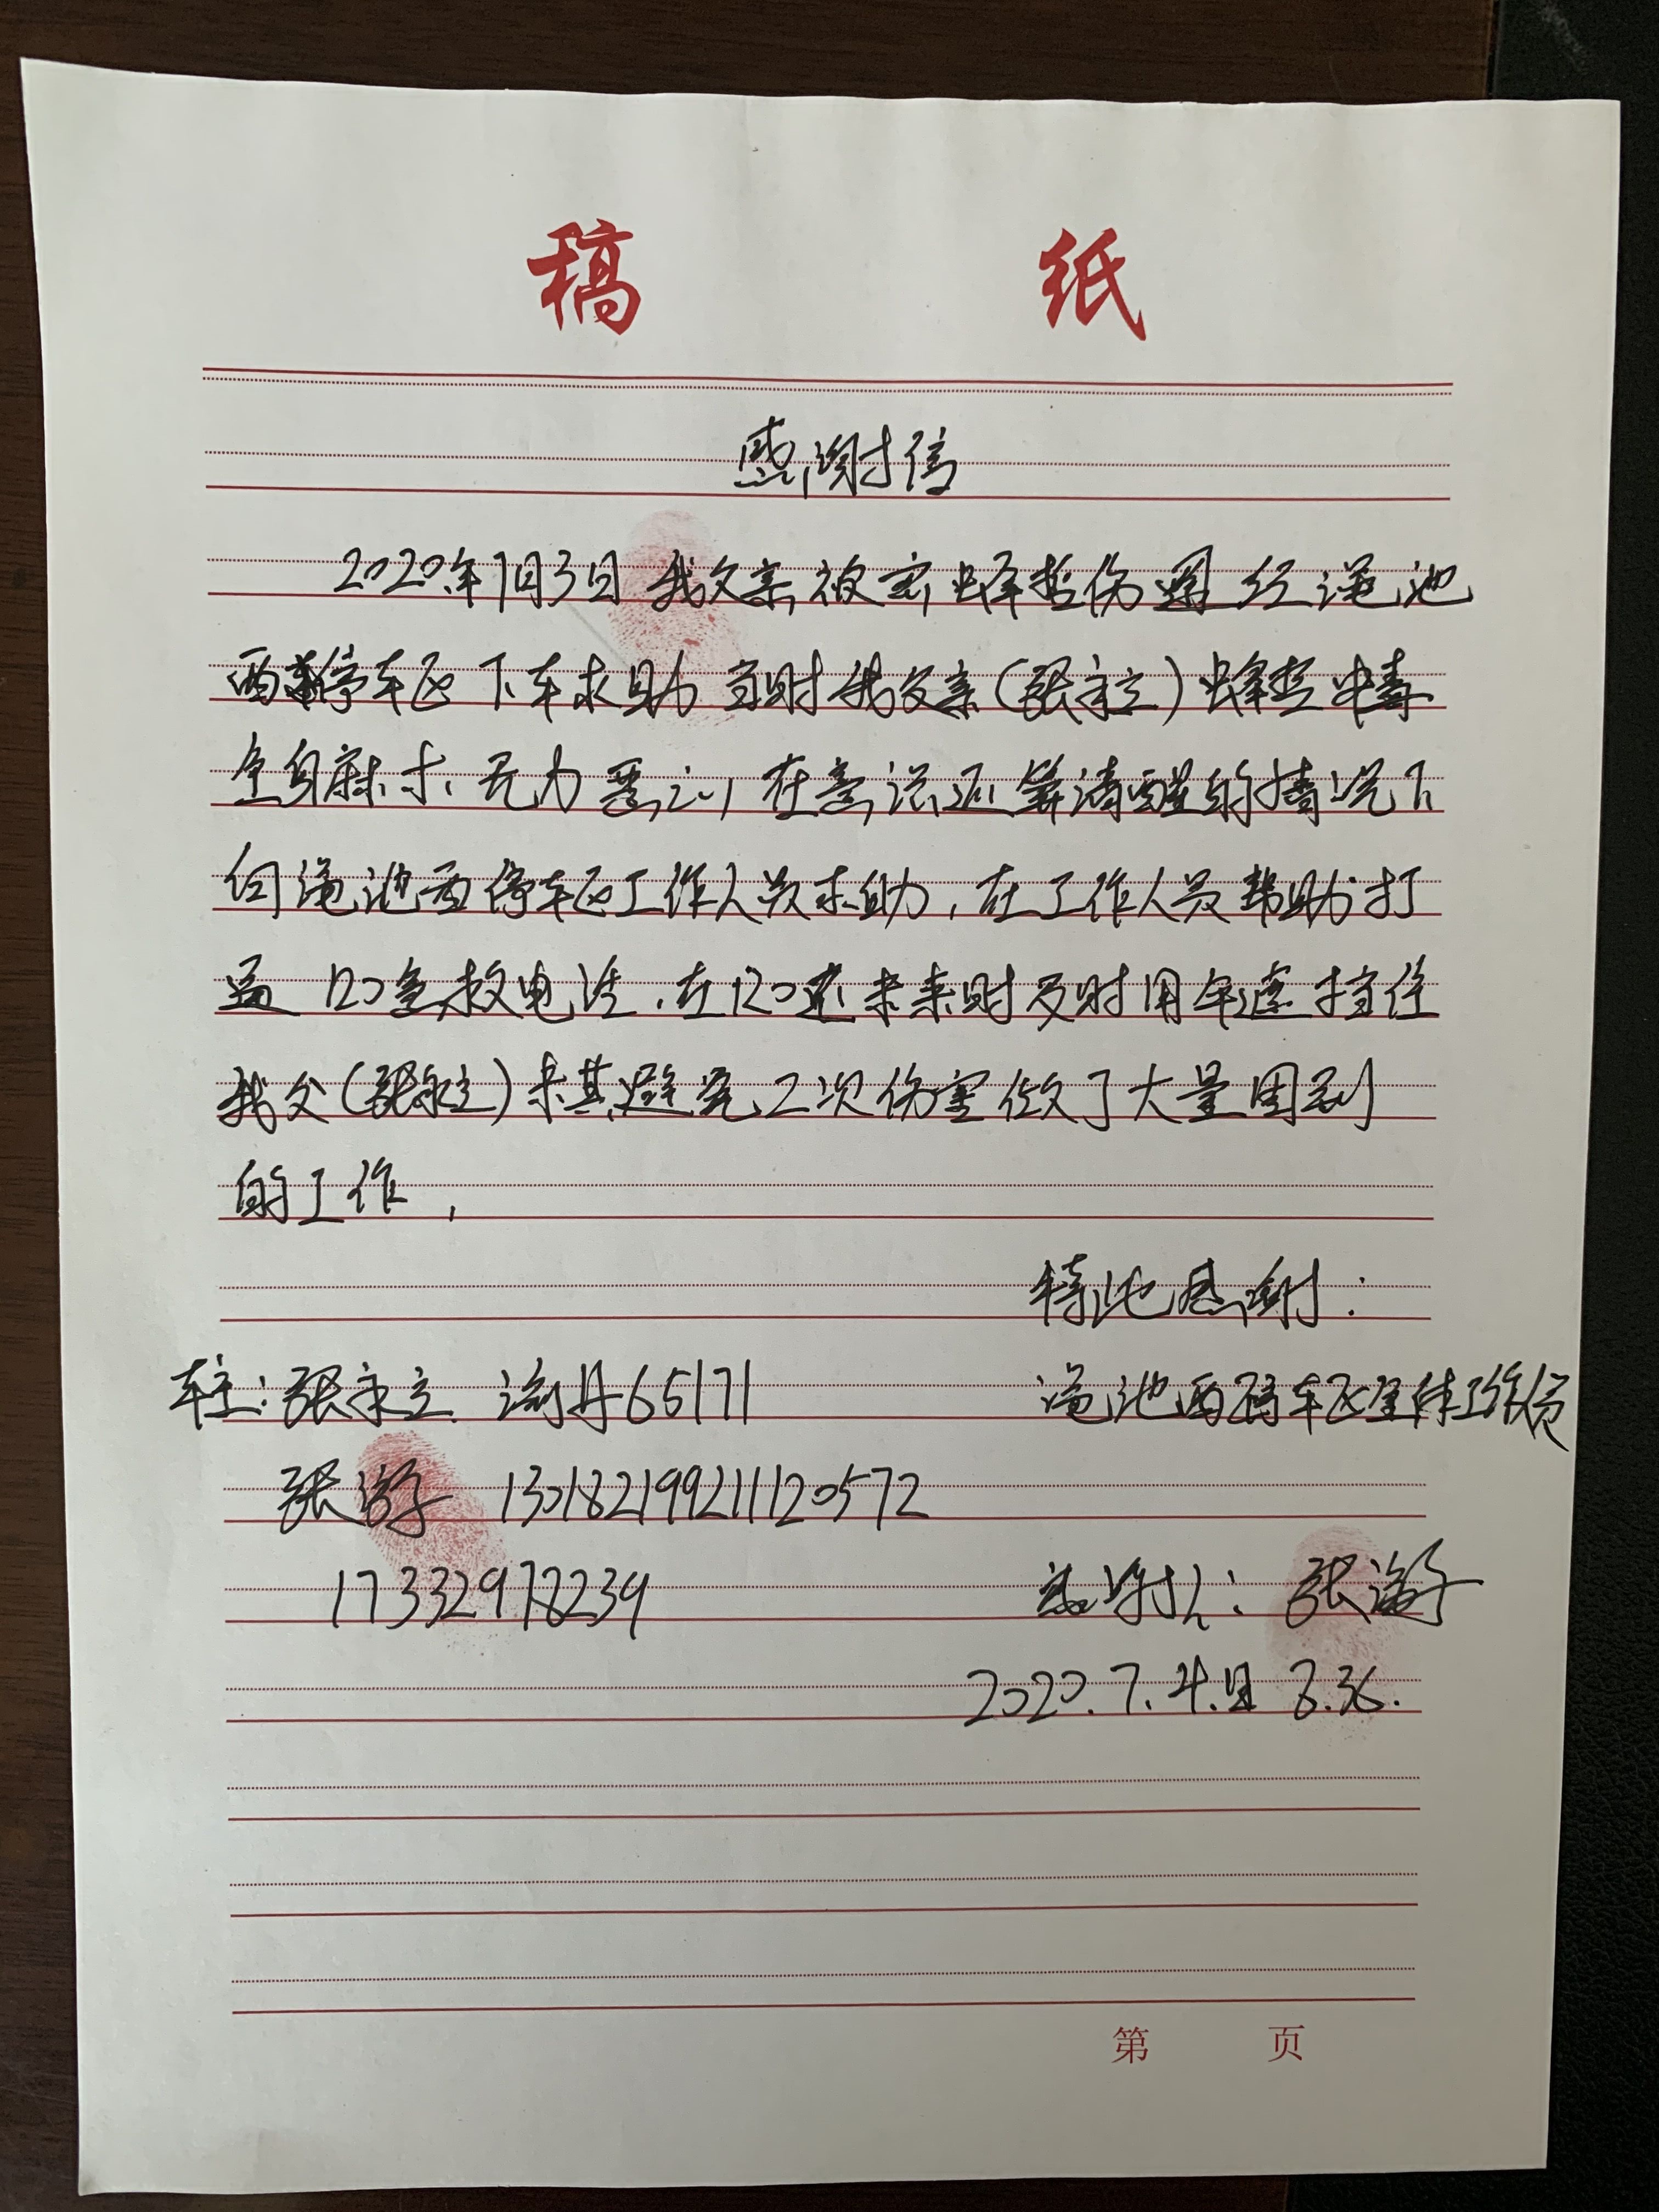 稿 纸
感谢信
2020年7月3日 我父亲被蜜蜂蜇伤 经渑池
西停车区下车求助 当时我父亲(张永立)蜂蜇中毒
全身麻木、无力 恶心 在意识还算清醒的情况下
向渑池西停车区工作人员求助,在工作人员帮助打
通120急救电话.在120还未来时及时用车速挡住
我父(张永立)未其避免2次伤害做了大量周到
的工作,
特此感谢:
车主:张永立 65171
渑池西停车区全体工作人员
张海 130182199211120572
17332978239
感谢人:张海
2020.7.4.日 8.36.
第 页